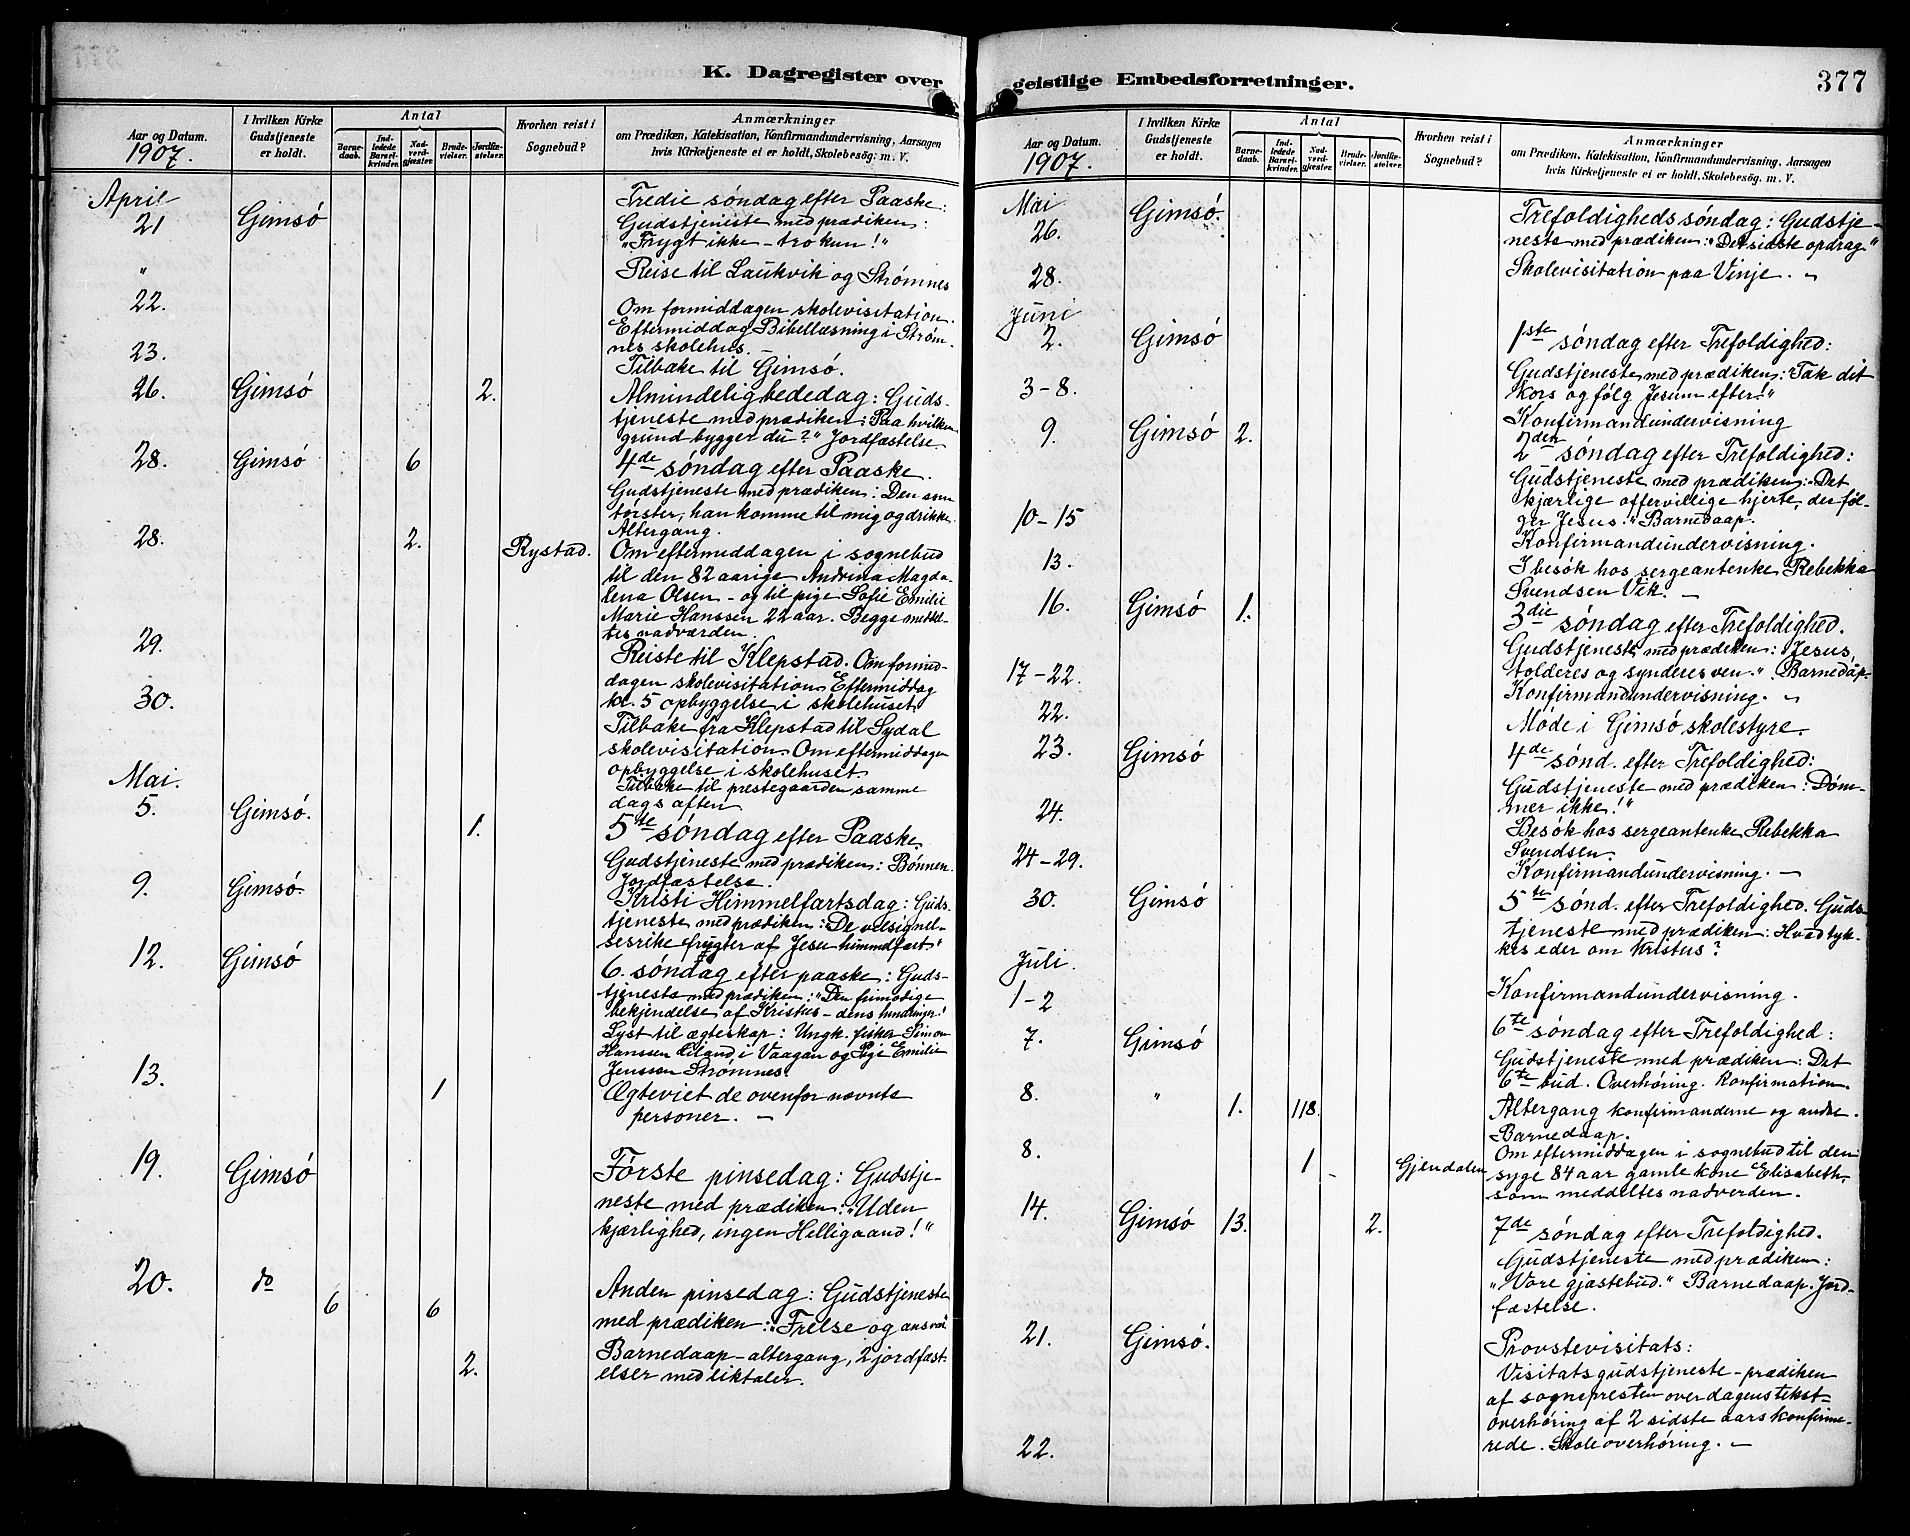 K. Dagregister over
Aar og Datum.
1907.
I hvilken Kirke
Gudstjeneste
er holdt.
Antal
Barne-
daab.
Ind-
ledede
Barsel-
kvinder.
Nad-
verd-
gjester.
Brude-
vielser.
Jordfæ-
stelser.
Hvorhen reist i
Sognebud?
Anmærkninger
om Prædiken, Katekisation, Konfirmandundervisning, Aarsagen
hvis Kirketjeneste ei er holdt, Skolebesøg m. V.
April
21 Gimsö Tredie söndag efter Paaske:
Gudstjeneste med prædiken:
"Frygt ikke - tro kun!"
" Reise til Laukvik og Strømnes
22. Om formiddagen skolevisitation.
Eftermiddag Bibellæsning i Strøm-
nes skolehus.
23. Tilbake til Gimsö.
26. Gimsö 2. Almindelig bededag: Guds-
tjeneste med prædiken: Paa hvilken
grund bygger du?" Jordfæstelse.
28. Gimsö 6 4de söndag efter Paaske.
Gudstjeneste med prædiken: Den som
törster, han komme til mig og drikke.
Altergang.
28. 2. Rystad. Om eftermiddagen i sognebud
til den 82 aarige Andrina Magda-
lena Olsen - og til pige Sofie Emilie
Marie Hanssen 22 aar. Begge meddel-
tes nadværden.
29. Reiste til Klepstad. Om formid-
dagen skolevisitation. Eftermiddag
kl. 5 opbyggelse i skolehuset
30. Tilbake fra Klepstad til Sydal
skolevisitation. Om eftermiddagen
opbyggelse i skolehuset.
Tilbake til prestegaarden samme
dags aften
Mai.
5. Gimsö. 1. 5te söndag efter Paaske.
Gudstjeneste med prædiken: Bönnen.
Jordfæstelse.
9. Gimsö. Kristi Himmelfartsdag: Guds-
tjeneste med prædiken: De velsignel-
sesrike frugter af Jesu himmelfart"
12. Gimsö 6. söndag efter paaske: Guds-
tjeneste med prædiken: "Den frimodige
bekjendelse af Kristus - dens hindringer!
Lyst til ægteskap: Ungk. fisker Simon
Hanssen i Vaagan og Pige Emilie
Jenssen Strømnes.
13. 1 Ægteviet de ovenfor nævnte
personer. -
19. Gimsö Förste pinsedag: Gudstje-
neste med prædiken: "Uden
kjærlighed, ingen Helligaand!"
20. do 6 6 Anden pinsedag: Gudstjeneste
med prædiken: "Frelse og ansvar"
2. Barnedaap - altergang, 2 jordfæst-
elser med liktaler.
geistlige Embedsforretninger.
377
Aar og Datum.
1907.
I hvilken Kirke
Gudstjeneste
er holdt.
Antal
Barne-
daab.
Ind-
ledede
Barsel-
kvinder.
Nad-
verd-
gjester.
Brude-
vielser.
Jordfæ-
stelser.
Hvorhen reist i
Sognebud?
Anmærkninger
om Prædiken, Katekisation, Konfirmandundervisning, Aarsagen
hvis Kirketjeneste ei er holdt, Skolebesøg. m. V.
Mai
26. Gimsö. Trefoldigheds söndag: Gudstje-
neste med prædiken: "Det sidste opdrag"
28. Skolevisitation paa Vinje. -
Juni
2. Gimsö 1ste söndag efter Trefoldighed:
Gudstjeneste med prædiken: "Tak dit
kors og fölg Jesum efter!"
3-8. Konfirmandundervisning
9. Gimsö 2. 2den söndag efter Trefoldighed:
Gudstjeneste med prædiken: Det
kjærlige offervillige hjerte, der föl-
ger Jesus." Barnedaap.
10-15 Konfirmandundervisning.
13. I besök hos sergeantenke Rebekka
Svendsen Vik. -
16. Gimsö 1. 3die söndag efter Trefoldighed.
Gudstjeneste med prædiken: Jesus,
tolderes og synderes ven." Barnedåp-
17-22. Konfirmandundervisning. -
22. Möde i Gimsö skolestyre.
23. Gimsö 4de sönd. efter Trefoldighed:
Gudstjeneste med prædiken: Döm-
mer ikke!"
24. Besök hos sergeantenke Rebekka
Svendsen.
24-29. Konfirmandundervisning. -
30. Gimsö 5te sönd. efter Trefoldighed. Guds-
tjeneste med prædiken: Hvad tyk-
kes eder om Kristus?
Juli.
1-2 Konfirmandundervisning.
7. Gimsö 6te söndag efter Trefoldighed:
Gudstjeneste med prædiken: Det
6te bud. Overhöring. Konfirmation.
8. " 1. 118. Altergang konfirmanderne og andre.
Barnedaap.
8. 1 - Gjendalen Om eftermiddagen i sognebud til den
syge 84 aar gamle kone Elisabeth,
som meddeltes nadverden.
14. Gimsö 13. 2. 7de söndag efter Trefoldighed.
Gudstjeneste med prædiken:
"Vore gjæstebud." Barnedaap. Jord-
fæstelse.
21. Gimsö. Provstevisitats:
Visitatsgudstjeneste - prædiken
af sognepresten over dagens tekst -
overhöring af 2 sidste aars konfirme-
22. rede. Skoleoverhöring. -